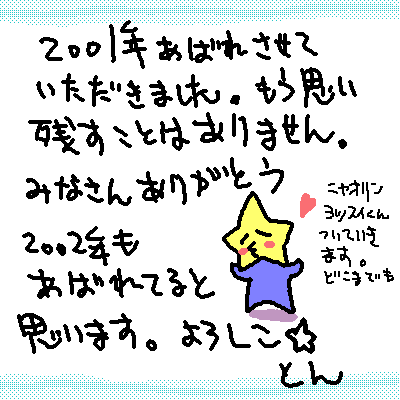 2001年あばれさせて
いただきました。もう思い
残すことはありません。
みなさんありがとう
2002年も
あばれてると
思います。よろしこ☆
とん
ニャオリン
ヨッスイくん
ついていき
ます。
どこまでも